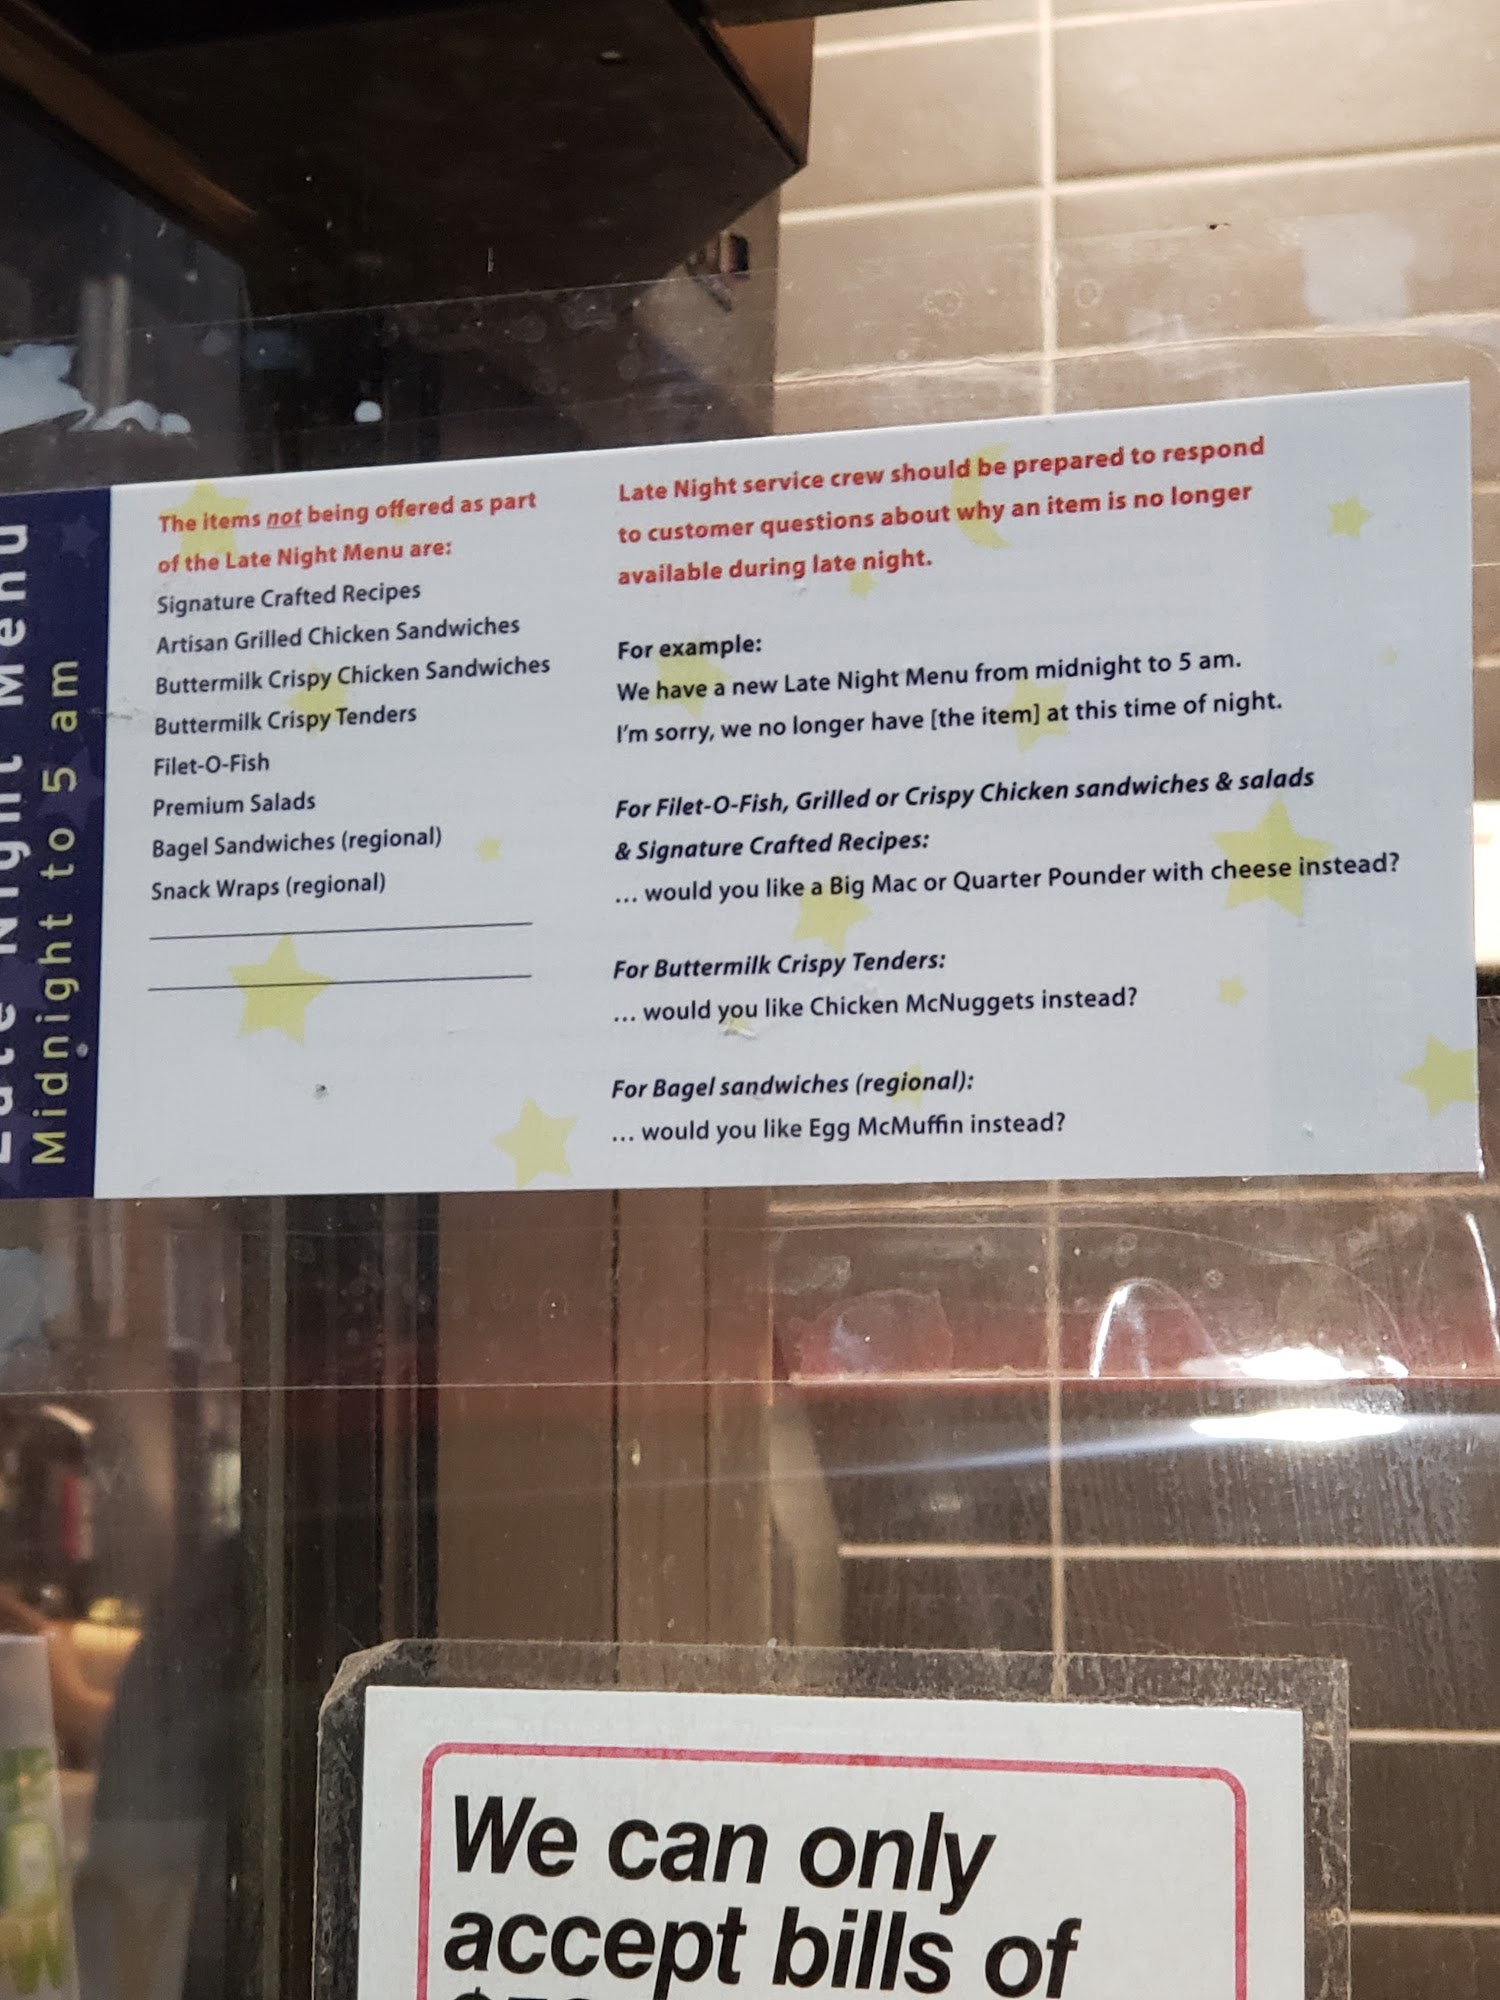 Late Night Menu
Midnight to 5 am
The items not being offered as part
of the Late Night Menu are:
Signature Crafted Recipes
Artisan Grilled Chicken Sandwiches
Buttermilk Crispy Chicken Sandwiches
Buttermilk Crispy Tenders
Filet-O-Fish
Premium Salads
Bagel Sandwiches (regional)
Snack Wraps (regional)
Late Night service crew should be prepared to respond
to customer questions about why an item is no longer
available during late night.
For example:
We have a new Late Night Menu from midnight to 5 am.
I'm sorry, we no longer have [the item] at this time of night.
For Filet-O-Fish, Grilled or Crispy Chicken sandwiches & salads
& Signature Crafted Recipes:
... would you like a Big Mac or Quarter Pounder with cheese instead?
For Buttermilk Crispy Tenders:
... would you like Chicken McNuggets instead?
For Bagel sandwiches (regional):
... would you like Egg McMuffin instead?
We can only
accept bills of